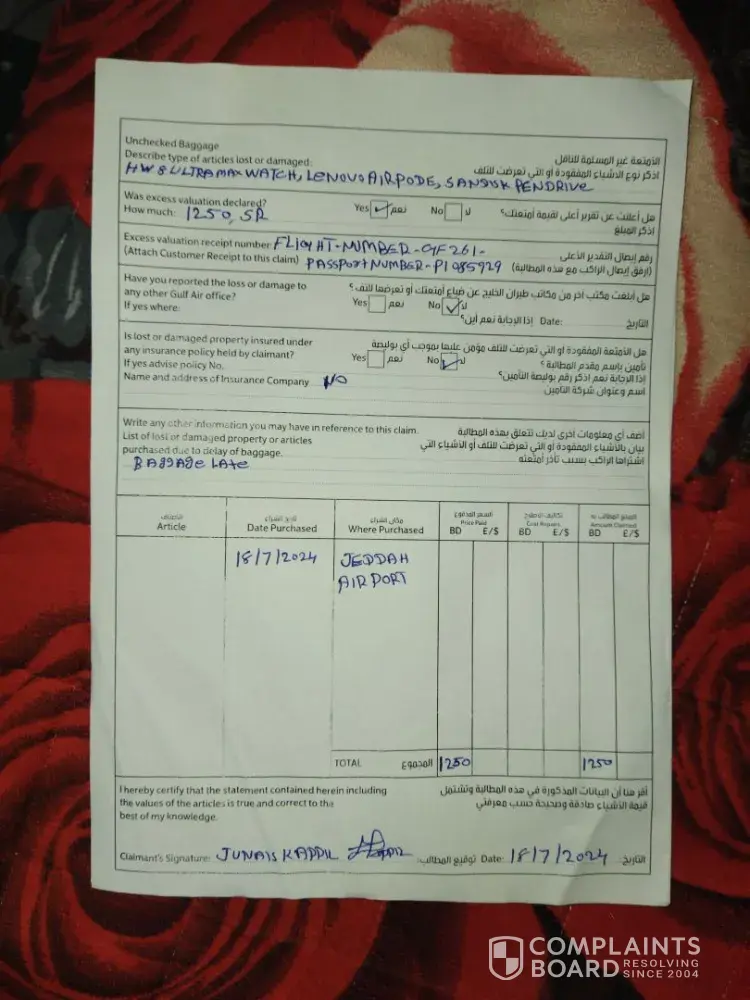 Unchecked Baggage
الأمتعة غير المسلمة للناقل
Describe type of articles lost or damaged:
اذكر نوع الأشياء المفقودة أو التي تعرضت للتلف
HW 8 ULTRA MAX WATCH, LENOVO AIRPODE, SANDISK PENDRIVE
Was excess valuation declared? Yes نعم No لا
هل أعلنت عن تقرير أعلى لقيمة أمتعتك؟
How much: 1250, SR
اذكر المبلغ
Excess valuation receipt number FLIGHT-NUMBER-GF261-
رقم إيصال التقدير الأعلى
(Attach Customer Receipt to this claim) PASSPORT NUMBER-P1085929
(ارفق إيصال الراكب مع هذه المطالبة)
Have you reported the loss or damage to
هل أبلغت مكتب آخر من مكاتب طيران الخليج عن ضياع أمتعتك أو تعرضها للتلف؟
any other Gulf Air office? Yes نعم No لا
If yes where: إذا الإجابة نعم أين؟ Date: التاريخ
Is lost or damaged property insured under
هل الأمتعة المفقودة أو التي تعرضت للتلف مؤمن عليها بموجب أي بوليصة
any insurance policy held by claimant? Yes نعم No لا
تأمين بإسم مقدم المطالبة ؟
If yes advise policy No.
إذا الإجابة نعم اذكر رقم بوليصة التأمين؟
Name and address of Insurance Company NO
اسم وعنوان شركة التأمين
Write any other information you may have in reference to this claim.
أضف أي معلومات أخرى لديك تتعلق بهذه المطالبة
List of lost or damaged property or articles
بيان بالأشياء المفقودة أو التي تعرضت للتلف أو الأشياء التي
purchased due to delay of baggage.
اشتراها الراكب بسبب تأخر أمتعته
BAggAge LAte
تاريخ الشراء مكان الشراء السعر المدفوع المبلغ المطالب به
Article Date Purchased Where Purchased Price Paid Cost Repairs Amount Claimed
BD £/$ BD £/$ BD £/$
18/7/2024 JEDDAH
AIRPORT
TOTAL المجموع 1250 1250
I hereby certify that the statement contained herein including
أقر هنا أن البيانات المذكورة في هذه المطالبة وتشتمل
the values of the articles is true and correct to the
قيمة الأشياء صادقة وصحيحة حسب معرفتي
best of my knowledge.
Claimant's Signature: JUNAIS KAPPIL توقيع المطالب: Date: 18/7/2024 التاريخ:
COMPLAINTS
BOARD RESOLVING
SINCE 2004